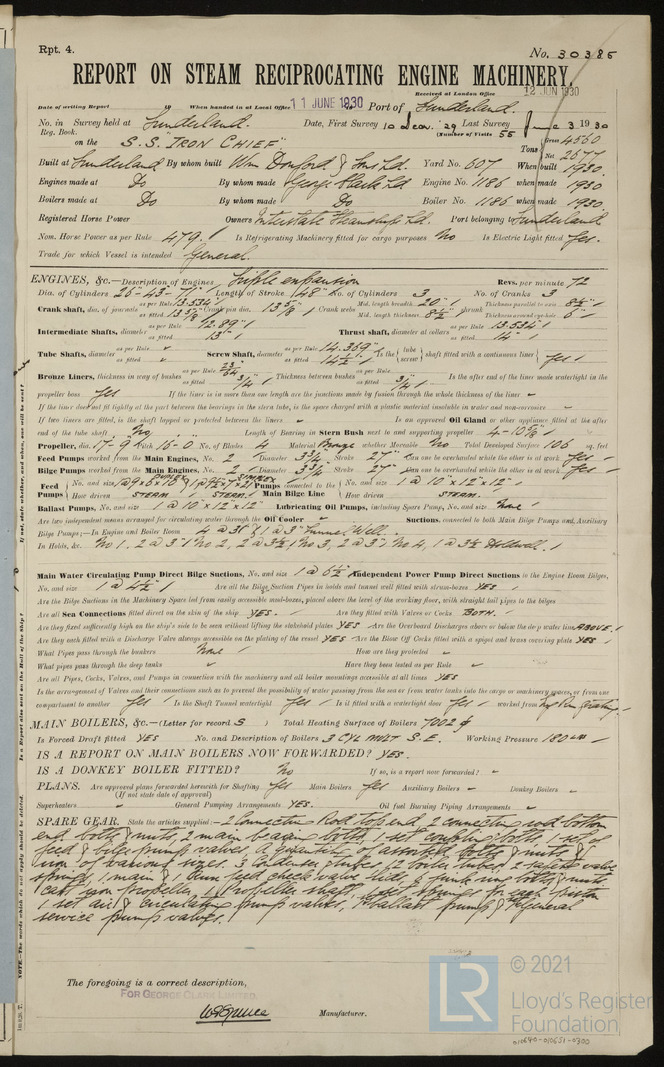 Rpt. 4.
No. 30385
REPORT ON STEAM RECIPROCATING ENGINE MACHINERY.
Received at London Office 12 JUN 1930
Date of writing Report 19 When handed in at Local Office 11 JUNE 1930 Port of Sunderland.
No. in Survey held at Sunderland. Date, First Survey 10 Last Survey June 3 1930
Reg. Book. (Number of Visits 55
on the S.S. "IRON CHIEF" Tons Gross 4560 Net 2677
Built at Sunderland By whom built Wm Doxford & Sons Ld. Yard No. 607 When built 1930.
Engines made at Do By whom made George Clark Ld Engine No. 1186 when made 1930
Boilers made at Do By whom made Do Boiler No. 1186 when made 1930
Registered Horse Power Owners Interstate Steamships Ld. Port belonging to Sunderland
Nom. Horse Power as per Rule 479. Is Refrigerating Machinery fitted for cargo purposes No Is Electric Light fitted Yes.
Trade for which Vessel is intended General.
ENGINES, &c.—Description of Engines Triple expansion Revs. per minute 72
Dia. of Cylinders 26"-43"-71" Length of Stroke 48" No. of Cylinders 3 No. of Cranks 3
Crank shaft, dia. of journals as per Rule 13.534 as fitted 13 5/8" Crank pin dia. 13 5/8" Crank webs Mid. length breadth 20" Mid. length thickness 8 1/2" shrunk Thickness parallel to axis 8 1/2" Thickness around eye-hole 6"
Intermediate Shafts, diameter as per Rule 12.89" as fitted 13" Thrust shaft, diameter at collars as per Rule 13.534 as fitted 14"
Tube Shafts, diameter as per Rule as fitted Screw Shaft, diameter as per Rule 14.369" as fitted 14 1/2" Is the tube screw shaft fitted with a continuous liner Yes
Bronze Liners, thickness in way of bushes as per Rule 23/64 as fitted 3/4" Thickness between bushes as per Rule as fitted 3/4" Is the after end of the liner made watertight in the
propeller boss Yes If the liner is in more than one length are the junctions made by fusion through the whole thickness of the liner
If the liner does not fit tightly at the part between the bearings in the stern tube, is the space charged with a plastic material insoluble in water and non-corrosive
If two liners are fitted, is the shaft lapped or protected between the liners Is an approved Oil Gland or other appliance fitted at the after
end of the tube shaft No Length of Bearing in Stern Bush next to and supporting propeller 4-10 5/8"
Propeller, dia. 17-9 Pitch 16-0 No. of Blades 4 Material Bronze whether Moveable No Total Developed Surface 106 sq. feet
Feed Pumps worked from the Main Engines, No. 2 Diameter 3 3/4" Stroke 27" Can one be overhauled while the other is at work Yes
Bilge Pumps worked from the Main Engines, No. 2 Diameter 3 3/4" Stroke 27" Can one be overhauled while the other is at work Yes
Feed Pumps No. and size How driven STEAM STEAM Pumps connected to the Main Bilge Line No. and size 1 @ 10" x 12" x 12" How driven STEAM.
Ballast Pumps, No. and size 1 @ 10" x 12" x 12" Lubricating Oil Pumps, including Spare Pump, No. and size None
Are two independent means arranged for circulating water through the Oil Cooler Suctions, connected to both Main Bilge Pumps and Auxiliary
Bilge Pumps;—In Engine and Boiler Room 4 @ 3 1/2" & 1 @ 3" Tunnel Well.
In Holds, &c. No 1, 2 @ 3" No 2, 2 @ 3 1/2" No 3, 2 @ 3" No 4, 1 @ 3 1/2 Holdwell.
Main Water Circulating Pump Direct Bilge Suctions, No. and size 1 @ 6 1/2" Independent Power Pump Direct Suctions to the Engine Room Bilges,
No. and size 1 @ 4 1/2" Are all the Bilge Suction Pipes in holds and tunnel well fitted with strum-boxes YES
Are the Bilge Suctions in the Machinery Space led from easily accessible mud-boxes, placed above the level of the working floor, with straight tail pipes to the bilges
Are all Sea Connections fitted direct on the skin of the ship YES. Are they fitted with Valves or Cocks BOTH.
Are they fixed sufficiently high on the ship's side to be seen without lifting the stokehold plates YES Are the Overboard Discharges above or below the deep water line ABOVE.
Are they each fitted with a Discharge Valve always accessible on the plating of the vessel YES Are the Blow Off Cocks fitted with a spigot and brass covering plate YES
What Pipes pass through the bunkers None How are they protected
What pipes pass through the deep tanks Have they been tested as per Rule
Are all Pipes, Cocks, Valves, and Pumps in connection with the machinery and all boiler mountings accessible at all times YES
Is the arrangement of Valves and their connections such as to prevent the possibility of water passing from the sea or from water tanks into the cargo or machinery spaces, or from one
compartment to another Yes Is the Shaft Tunnel watertight Yes Is it fitted with a watertight door Yes worked from
MAIN BOILERS, &c.—(Letter for record S ) Total Heating Surface of Boilers 7002
Is Forced Draft fitted YES No. and Description of Boilers 3 CYL MULT S.E. Working Pressure 180 LBS
IS A REPORT ON MAIN BOILERS NOW FORWARDED? YES.
IS A DONKEY BOILER FITTED? No If so, is a report now forwarded?
PLANS. Are approved plans forwarded herewith for Shafting Yes Main Boilers Yes Auxiliary Boilers Donkey Boilers
(If not state date of approval)
Superheaters General Pumping Arrangements YES. Oil fuel Burning Piping Arrangements
SPARE GEAR. State the articles supplied:— 2 Connecting Rod top end, 2 connecting rod bottom
end bolts & nuts, 2 main bearing bolts, 1 set coupling bolts, 1 set of
feed & bilge pump valves, a quantity of assorted bolts & nuts &
iron of various sizes. 3 Condenser tubes, 12 boiler tubes, 2 safety valve
springs, 1 main & 1 donk feed check valve lids, junk ring bolts & nuts
cast iron propeller, 1 propeller shaft, 1 set springs for each piston
1 set air & circulating pump valves, ballast pump & general
service pump valves.
The foregoing is a correct description,
FOR GEORGE CLARK LIMITED.
Manufacturer.
© 2021
LR
Lloyd's Register
Foundation
010640-010651-0300